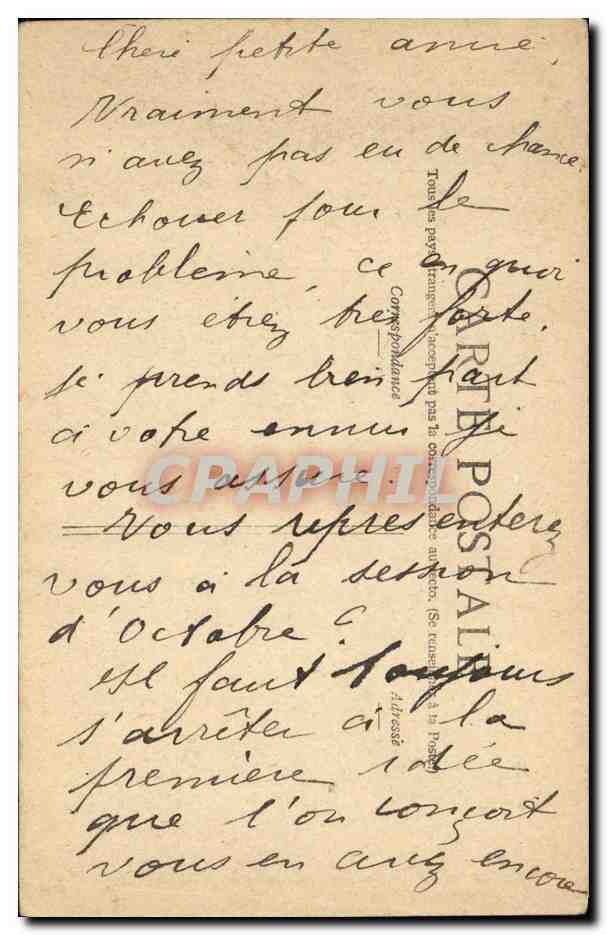 Cheri petite amie,
Vraiment vous
n'avez pas eu de chance.
Echouer pour le
probleme, ce en quoi
vous étiez tres forte.
Je prends bien part
à votre ennui je
vous assure.
Vous representerez
vous à la session
d'Octobre ?
Il faut toujours
s'arrêter à la
premiere idée
que l'on conçoit
vous en avez encore
CARTE POSTALE
Tous les pays étrangers n'acceptent pas la correspondance au recto. (Se renseigner à la Poste)
Correspondance
Adresse
CPRAPHIL